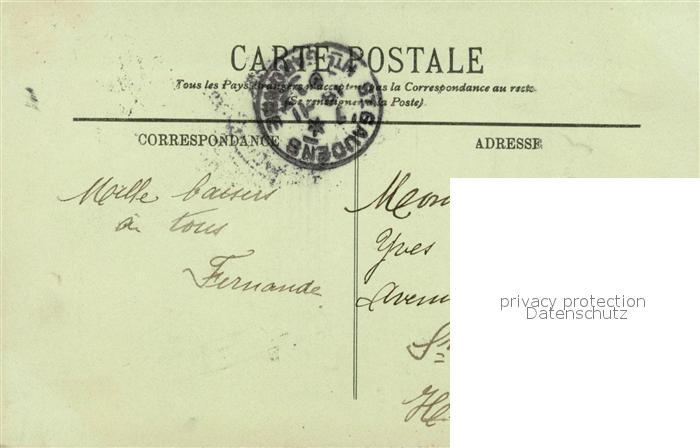 CARTE POSTALE
Tous les Pays étrangers n'acceptent pas la Correspondance au recto
(Se renseigner à la Poste)
CORRESPONDANCE
ADRESSE
ST GAUDENS
Mille baisers
à tous
Fernande
Yves
privacy protection
Datenschutz